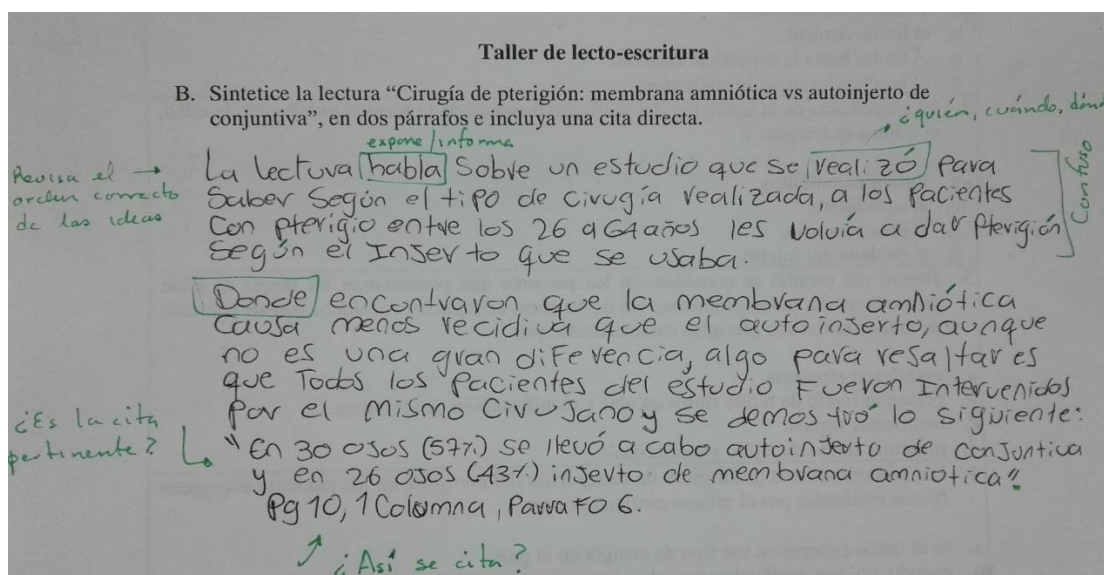 Taller de lecto-escritura
B. Sintetice la lectura “Cirugía de pterigión: membrana amniótica vs autoinjerto de
conjuntiva”, en dos párrafos e incluya una cita directa.
¿quién, cuándo, dónd
expone/informa
La lectura habla sobre un estudio que se realizó para
Revisa el →
orden correcto
de las ideas
saber según el tipo de cirugía realizada, a los pacientes
con pterigio entre los 26 a 64 años les volvía a dar pterigión
según el inserto que se usaba.
Confuso
Donde encontraron que la membrana amniótica
causa menos recidiva que el autoinserto, aunque
no es una gran diferencia, algo para resaltar es
que Todos los pacientes del estudio Fueron Intervenidos
por el mismo Cirujano y se demostró lo siguiente:
¿Es la cita
pertinente?
"En 30 ojos (57%) se llevó a cabo autoinjerto de conjuntiva
y en 26 ojos (43%) injerto de membrana amniotica"
Pg 10, 1 Columna, Parrafo 6.
¿Así se cita?